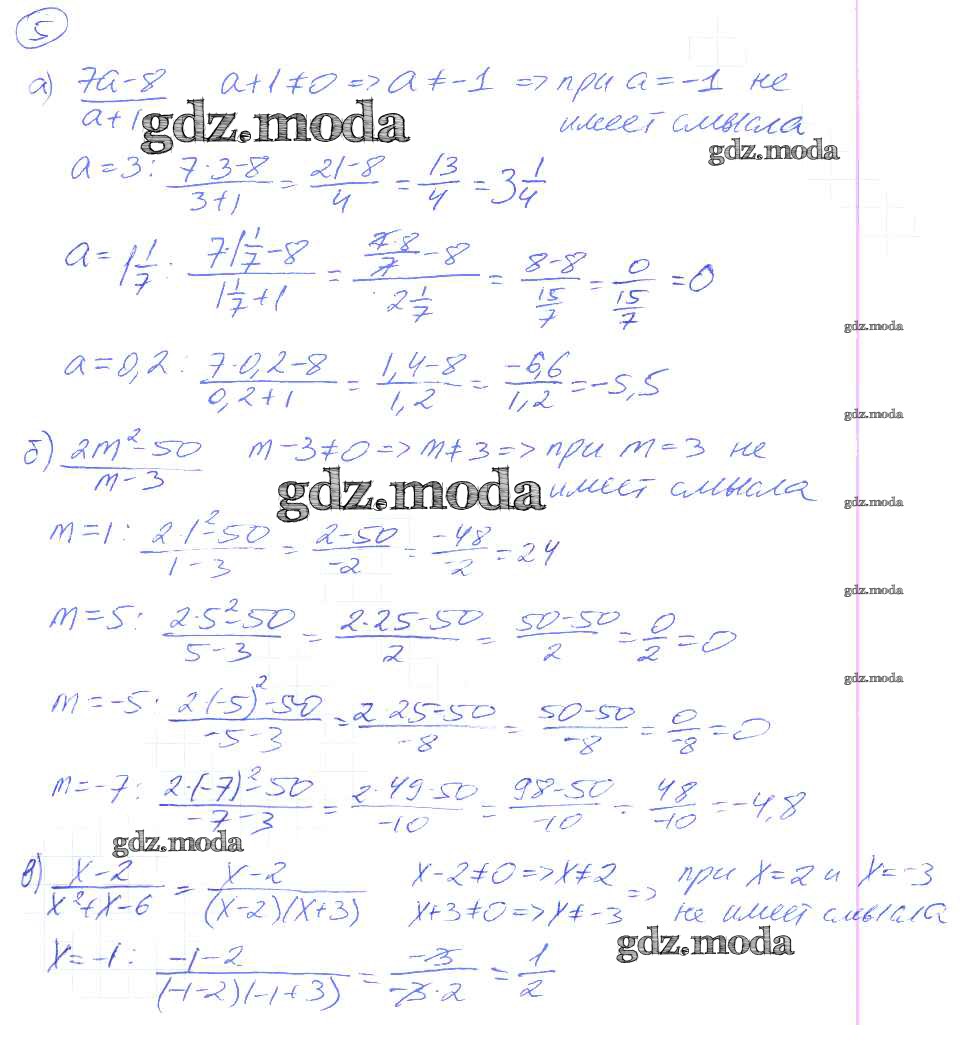 5
а) (7a-8)/(a+1) a+1≠0 => a≠-1 => при a=-1 не
имеет смысла
gdz.moda
gdz.moda
a=3: (7·3-8)/(3+1) = (21-8)/4 = 13/4 = 3 1/4
a=1 1/7: (7·1 1/7-8)/(1 1/7+1) = (7·8/7-8)/(2 1/7) = (8-8)/(15/7) = 0/(15/7) = 0
gdz.moda
a=0,2: (7·0,2-8)/(0,2+1) = (1,4-8)/1,2 = -6,6/1,2 = -5,5
gdz.moda
б) (2m²-50)/(m-3) m-3≠0 => m≠3 => при m=3 не
имеет смысла
gdz.moda
gdz.moda
m=1: (2·1²-50)/(1-3) = (2-50)/-2 = -48/-2 = 24
gdz.moda
m=5: (2·5²-50)/(5-3) = (2·25-50)/2 = (50-50)/2 = 0/2 = 0
gdz.moda
m=-5: (2(-5)²-50)/(-5-3) = (2 25-50)/-8 = (50-50)/-8 = 0/-8 = 0
m=-7: (2·(-7)²-50)/(-7-3) = (2·49-50)/-10 = (98-50)/-10 = 48/-10 = -4,8
gdz.moda
в) (x-2)/(x²+x-6) = (x-2)/((x-2)(x+3)) x-2≠0 => x≠2 => при x=2 и x=-3
x+3≠0 => x≠-3 не имеет смысла
gdz.moda
x=-1: (-1-2)/((-1-2)(-1+3)) = -3/(-3·2) = 1/2